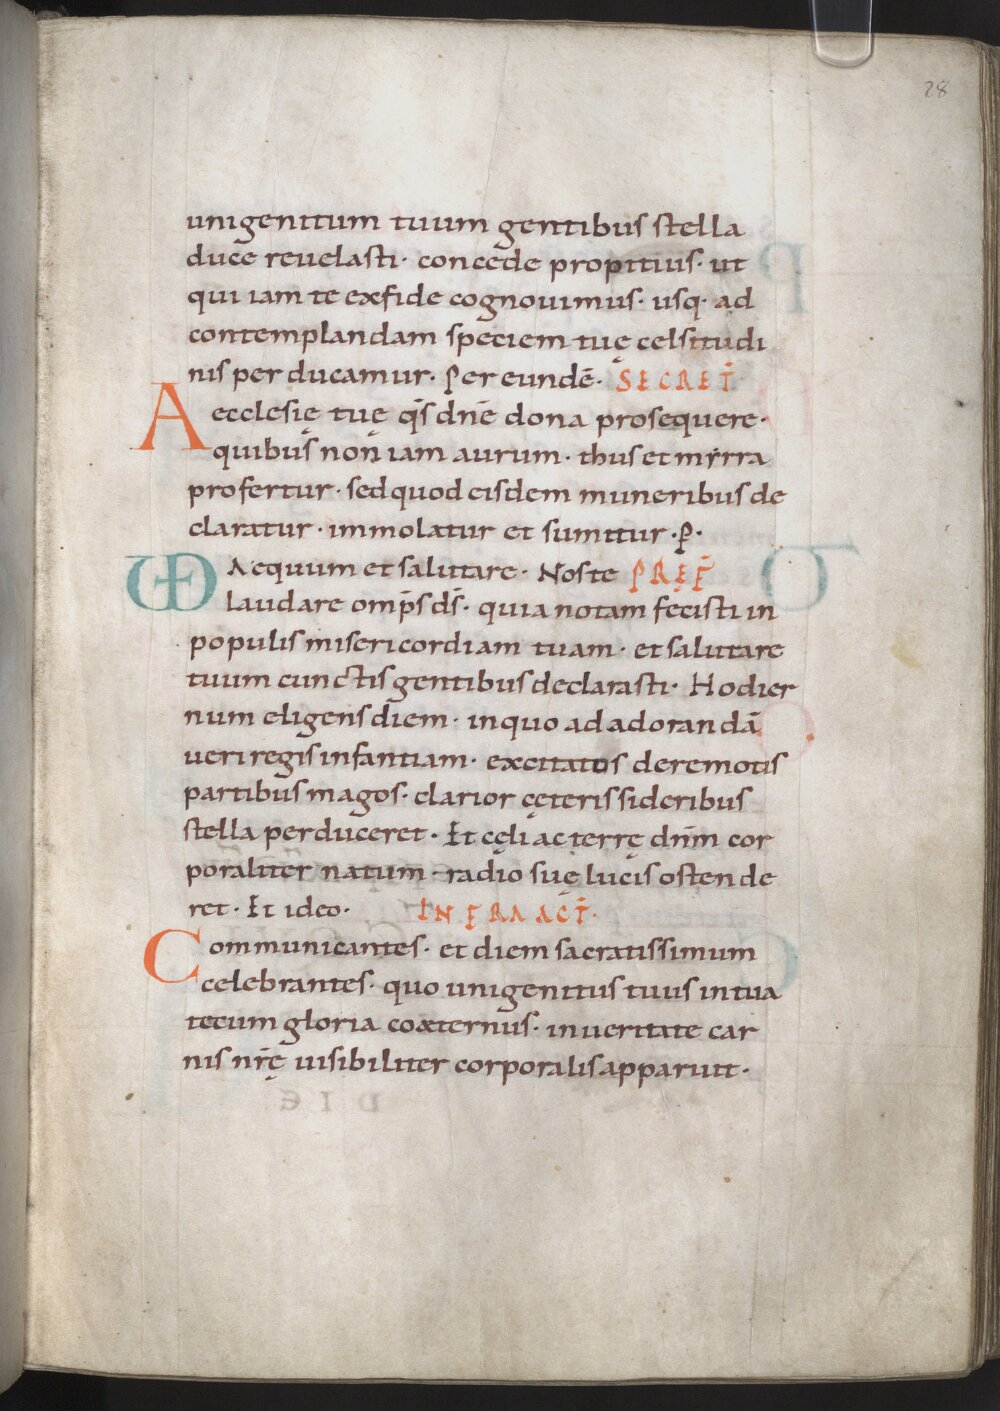 28
unigenitum tuum gentibus stella
duce reuelasti· concede propitius· ut
qui iam te exfide cognouimus· usq· ad
contemplandam speciem tuę celsitudi
nis per ducamur· Per eundē· SECRET̄
A ecclesię tuę q̄s dnē dona prosequere·
quibus non iam aurum· thus et mẏrra
profertur· sed quod eisdem muneribus de
claratur· immolatur et sumitur· P̲·
UD Aequum et salutare· Nos te PREF̄
laudare omp̄s ds̄· quia notam fecisti in
populis misericordiam tuam· et salutare
tuum cunctis gentibus declarasti· Hodier
num eligens diem· in quo ad adorandā
ueri regis infantiam· excitatos de remotis
partibus magos· clarior cęteris sideribus
stella perduceret· Et cęli ac terrę dnm̄ cor
poraliter natum· radio suę lucis ostende
ret· Et ideo· INFRA ACT̄·
Communicantes· et diem sacratissimum
celebrantes· quo unigenitus tuus in tua
tecum gloria coæternus· in ueritate car
nis nrę̄ uisibiliter corporalis apparuit·